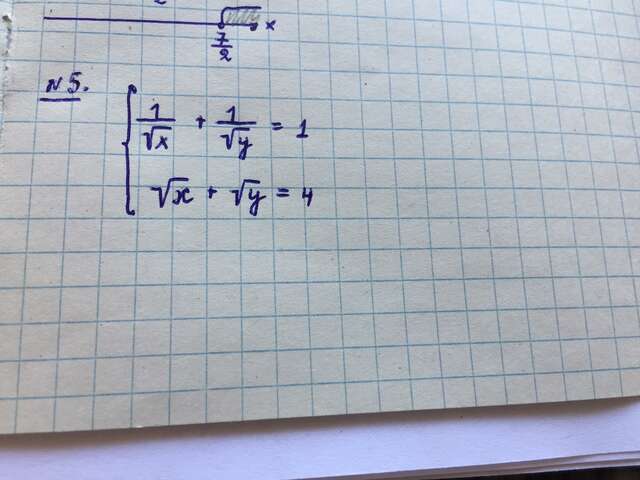 x
7/2
№5.
1/√x + 1/√y = 1
√x + √y = 4